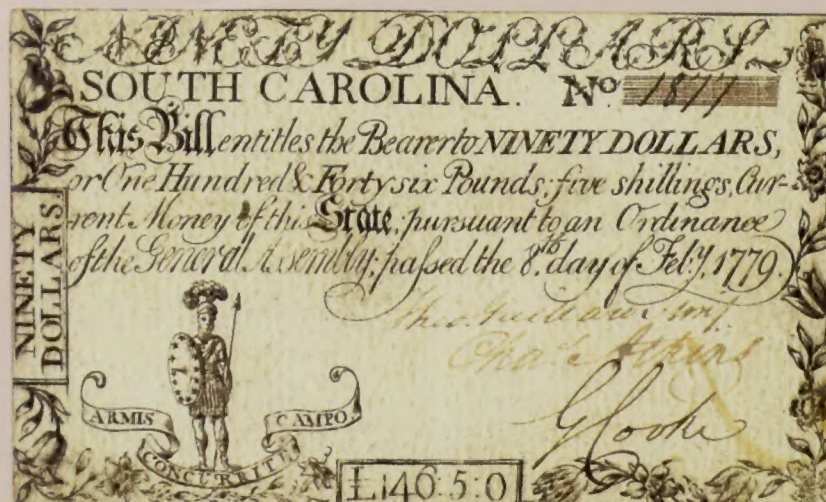 NINETY DOLLARS
SOUTH CAROLINA. No. 1877
This Bill entitles the Bearer to NINETY DOLLARS,
or One Hundred & Forty six Pounds; five shillings, Cur-
rent Money of this State; pursuant to an Ordinance
of the General Assembly; passed the 8th. day of Feb:y. 1779.
NINETY
DOLLARS
Atkins
G Cooke
ARMIS CAMPO
CONCURRITE
£146:5:0